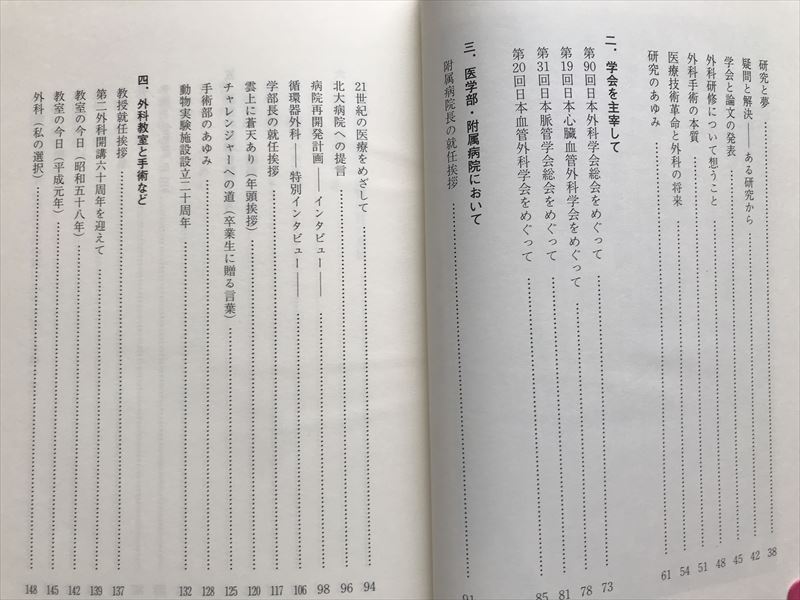 研究と夢……38
疑問と解決――ある研究から……42
学会と論文の発表……45
外科研修について想うこと……48
外科手術の本質……51
医療技術革命と外科の将来……54
研究のあゆみ……61
二．学会を主宰して
第90回日本外科学会総会をめぐって……73
第19回日本心臓血管外科学会をめぐって……78
第31回日本脈管学会総会をめぐって……81
第20回日本血管外科学会をめぐって……85
三．医学部・附属病院において
附属病院長の就任挨拶……91
21世紀の医療をめざして……94
北大病院への提言……96
病院再開発計画――インタビュー――……98
循環器外科――特別インタビュー――……106
学部長の就任挨拶……117
雲上に蒼天あり（年頭挨拶）……120
チャレンジャーへの道（卒業生に贈る言葉）……125
手術部のあゆみ……128
動物実験施設設立二十周年……132
四．外科教室と手術など
教授就任挨拶……137
第二外科開講六十周年を迎えて……139
教室の今日（昭和五十八年）……142
教室の今日（平成元年）……145
外科（私の選択）……148